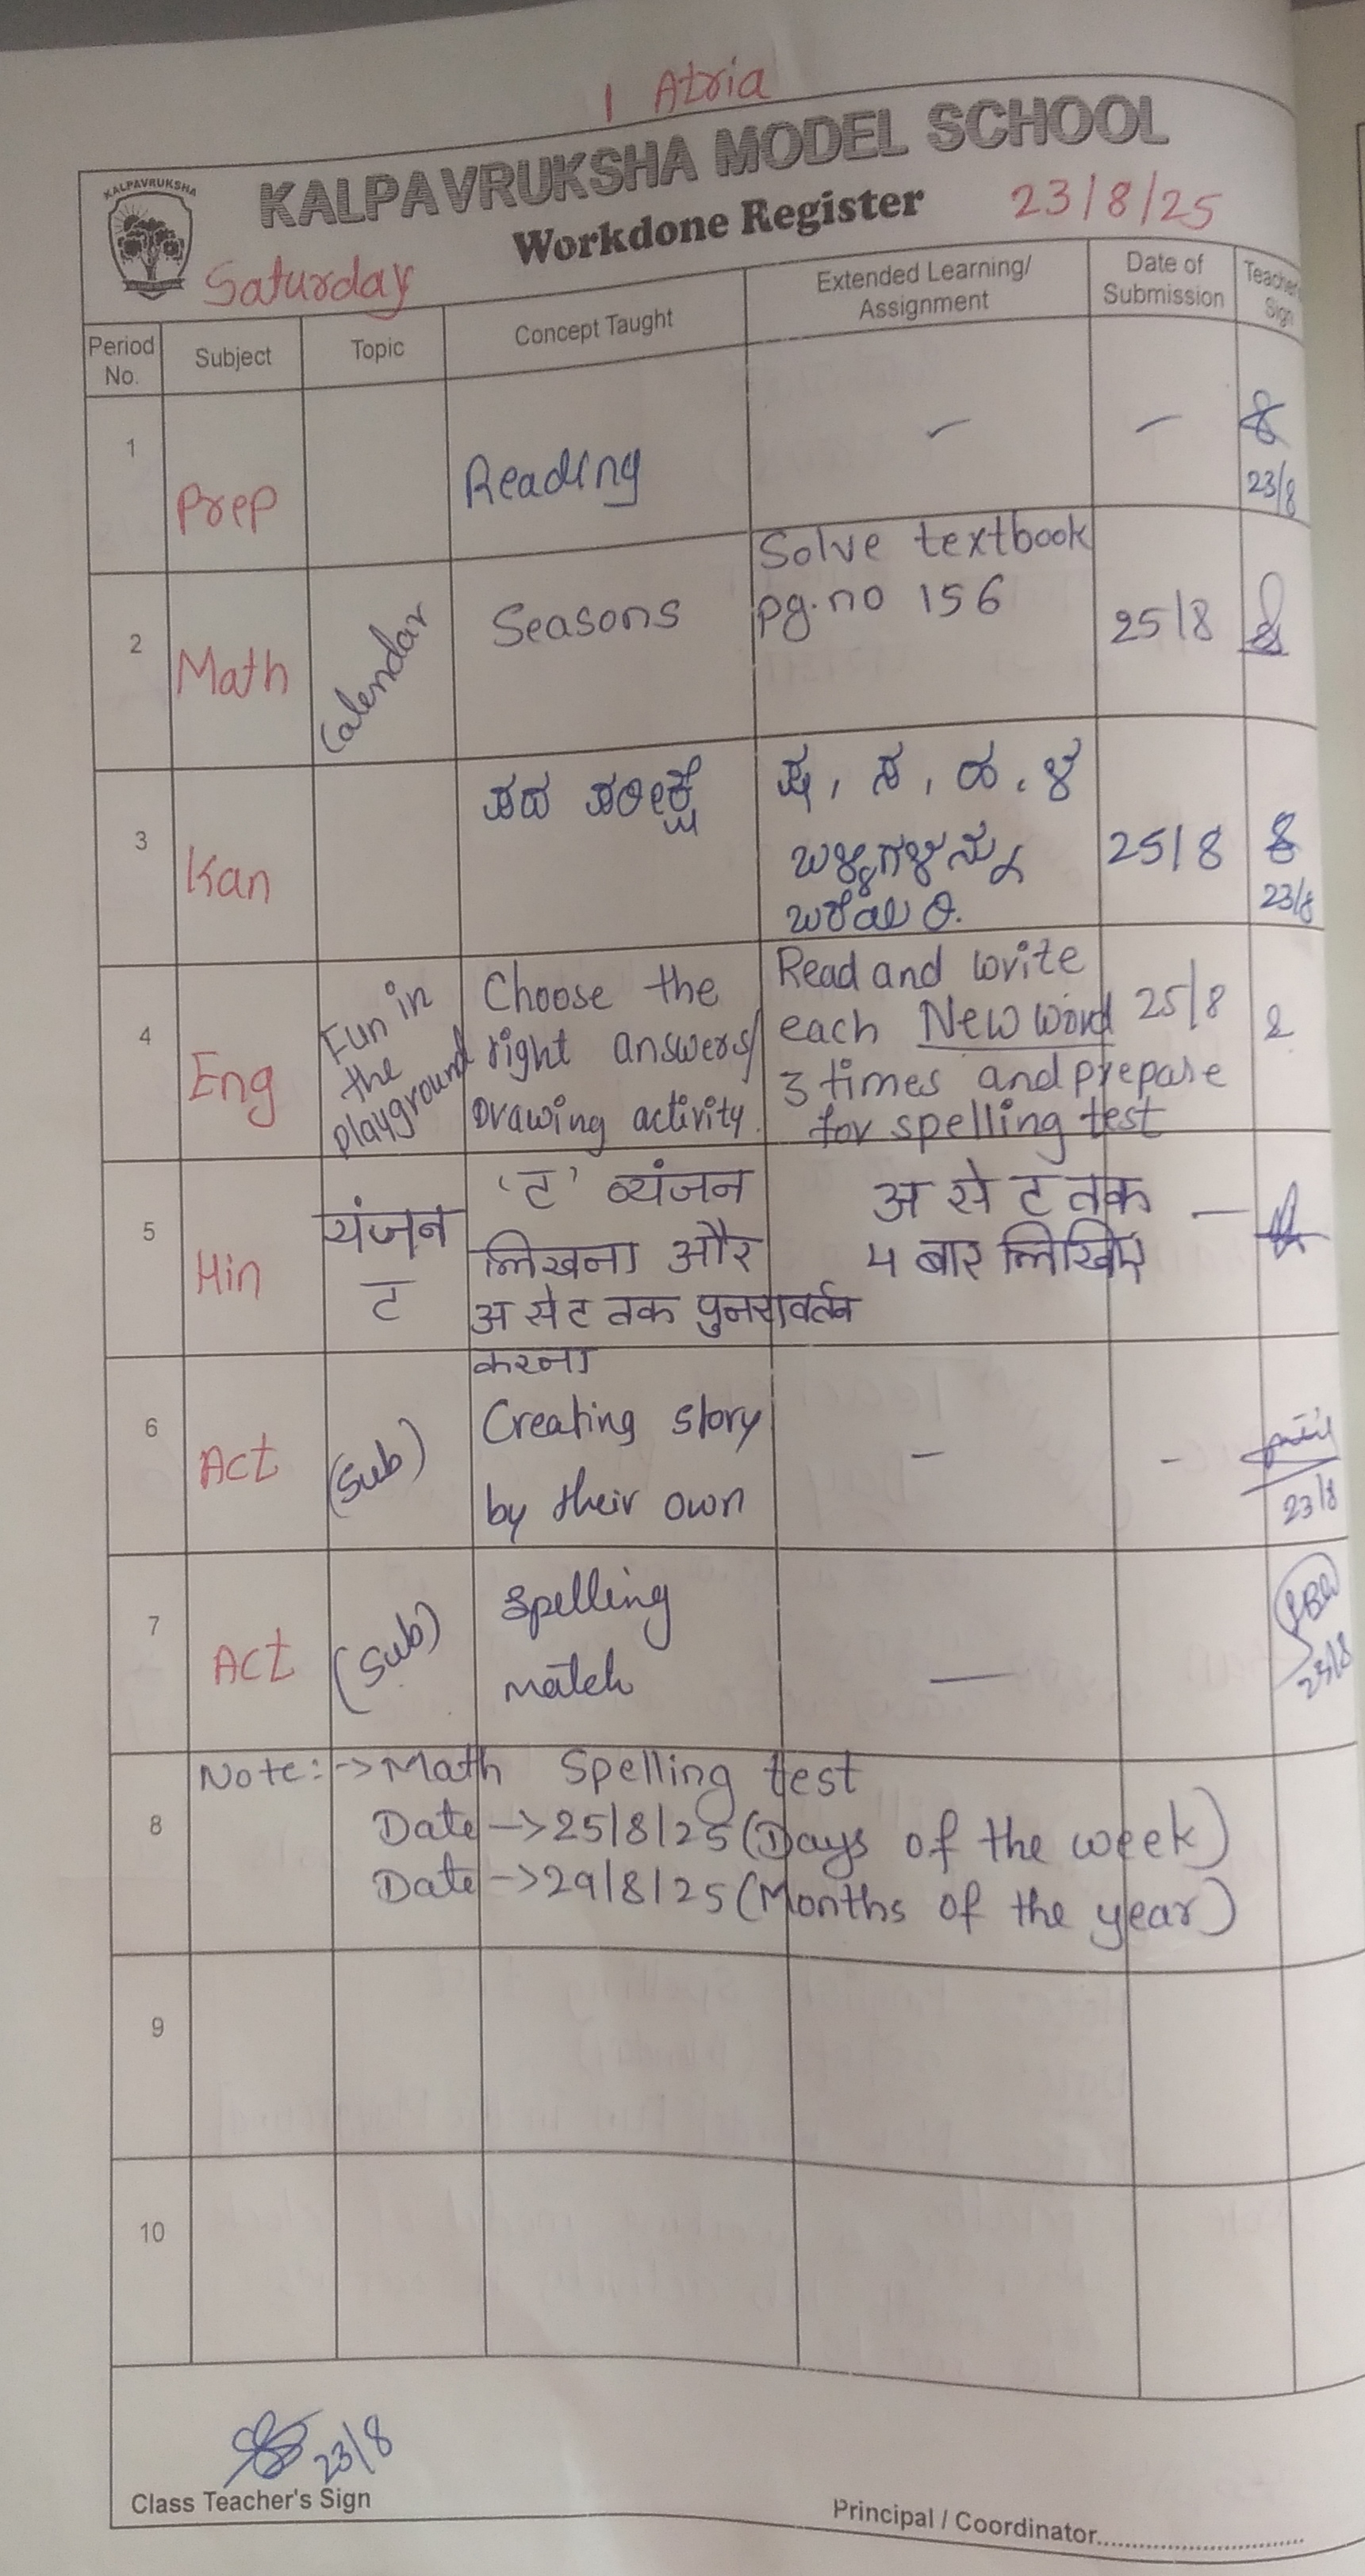 1 Atria
KALPAVRUKSHA
KALPAVRUKSHA MODEL SCHOOL
Workdone Register 23/8/25
Saturday
Period No. Subject Topic Concept Taught Extended Learning/ Assignment Date of Submission Teacher's Sign
1 Prep Reading – –
23/8
2 Math Calendar Seasons Solve textbook
pg.no 156 25/8
3 Kan ಪದ ಪರೀಕ್ಷೆ ಷ, ಸ, ಹ, ಳ
ಬಳ್ಳಿಗಳನ್ನು
ಬರೆಯಿರಿ.
25/8
23/8
4 Eng Fun in
the
playground
Choose the
right answers/
Drawing activity.
Read and write
each New word
3 times and prepare
for spelling test
25/8
5 Hin यंजन
ट
'ट' व्यंजन
लिखना और
अ से ट तक पुनरावर्तन
करना
अ से ट तक
4 बार लिखिए
—
6 Act (Sub) Creating story
by their own
– -
23/8
7 Act (Sub) Spelling
match
—
23/8
8 Note:-> Math Spelling test
Date -> 25/8/25 (Days of the week)
Date -> 29/8/25 (Months of the year)
9
10
23/8
Class Teacher's Sign
Principal / Coordinator